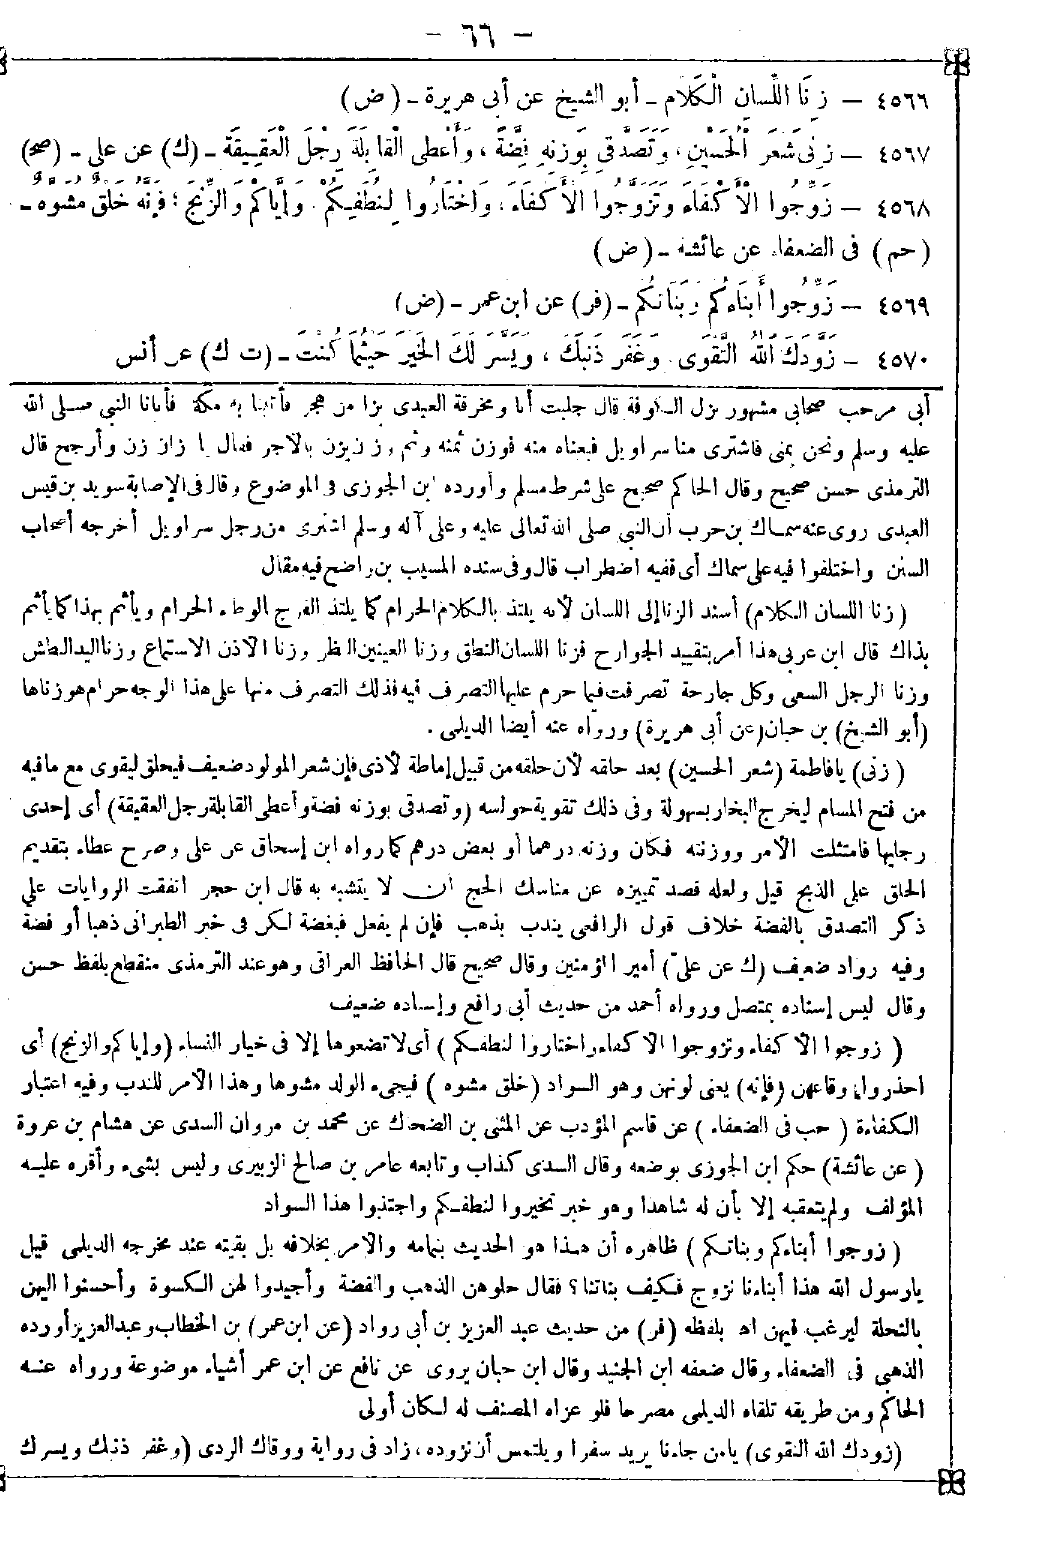 - ٦٦ -
٤٥٦٦ – زِنَا اللِّسَانِ الْكَلَامُ - أبو الشيخ عن أبى هريرة - (ض)
٤٥٦٧ – زِنِى شَعَرَ الْحُسَيْنِ، وَتَصَدَّقِى بِوَزْنِهِ فِضَّةً، وَأَعْطِى الْقَابِلَةَ رِجْلَ الْعَقِيقَةِ - (ك) عن على - (صح)
٤٥٦٨ – زَوِّجُوا الْأَكْفَاءَ وَتَزَوَّجُوا الْأَكْفَاءَ، وَاخْتَارُوا لِنُطَفِكُمْ. وَإِيَّاكُمْ وَالزِّنْجَ؛ فَإِنَّهُ خَلْقٌ مُشَوَّهٌ -
(حم) فى الضعفاء عن عائشة - (ض)
٤٥٦٩ – زَوِّجُوا أَبْنَاءَكُمْ وَبَنَاتِكُمْ - (فر) عن ابن عمر - (ض)
٤٥٧٠ - زَوَّدَكَ اللهُ التَّقْوَى. وَغَفَرَ ذَنْبَكَ، وَيَسَّرَ لَكَ الْخَيْرَ حَيْثُمَا كُنْتَ - (ت ك) عن أنس
أبى مرحب صحابى مشهور نزل الكوفة قال جلبت أنا ومخرفة العبدى بزا من هجر فأتينا به مكة فأتانا النبى صلى الله
عليه وسلم ونحن بمنى فاشترى منا سراويل فبعناه منه فوزن ثمنه وثم وزان يزن بالأجر فقال يا وزان زن وأرجح قال
الترمذى حسن صحيح وقال الحاكم صحيح على شرط مسلم وأورده ابن الجوزى فى الموضوع وقال فى الإصابة سويد بن قيس
العبدى روى عنه سماك بن حرب أن النبى صلى الله تعالى عليه وعلى آله وسلم اشترى من رجل سراويل أخرجه أصحاب
السنن واختلفوا فيه على سماك أى ففيه اضطراب قال وفى سنده المسيب بن واضح فيه مقال
(زنا اللسان الكلام) أسند الزنا إلى اللسان لأنه يلتذ بالكلام الحرام كما يلتذ الفرج الوطء الحرام ويأثم بهذا كما يأثم
بذاك قال ابن عربى هذا أمر بتقييد الجوارح فزنا اللسان النطق وزنا العينين النظر وزنا الأذن الاستماع وزنا اليد البطش
وزنا الرجل السعى وكل جارحة تصرفت فيما حرم عليها التصرف فيه فذلك التصرف منها على هذا الوجه حرام هو زناها
(أبو الشيخ) بن حبان (عن أبى هريرة) ورواه عنه أيضا الديلمى.
(زنى) يا فاطمة (شعر الحسين) بعد حلقه لأن حلقه من قبيل إماطة الأذى فإن شعر المولود ضعيف فيحلق ليقوى مع ما فيه
من فتح المسام ليخرج البخار بسهولة وفى ذلك تقوية حواسه (وتصدقى بوزنه فضة وأعطى القابلة رجل العقيقة) أى إحدى
رجليها فامتثلت الأمر ووزنته فكان وزنه درهما أو بعض درهم كما رواه ابن إسحاق عن على وصرح عطاء بتقديم
الحلق على الذبح قيل ولعله قصد تمييزه عن مناسك الحج أن لا يتشبه به قال ابن حجر اتفقت الروايات على
ذكر التصدق بالفضة خلاف قول الرافعى يندب بذهب فإن لم يفعل فبفضة لكن فى خبر الطبرانى ذهبا أو فضة
وفيه رواد ضعيف (ك عن على) أمير المؤمنين وقال صحيح قال الحافظ العراقى وهو عند الترمذى منقطع بلفظ حسن
وقال ليس إسناده بمتصل ورواه أحمد من حديث أبى رافع وإسناده ضعيف
(زوجوا الأكفاء وتزوجوا الأكفاء واختاروا لنطفكم) أى لا تضعوها إلا فى خيار النساء (وإياكم والزنج) أى
احذروا وقاعهن (فإنه) يعنى لونهن وهو السواد (خلق مشوه) فيجىء الولد مشوها وهذا الأمر للندب وفيه اعتبار
الكفاءة (حب فى الضعفاء) عن قاسم المؤدب عن المثنى بن الضحاك عن محمد بن مروان السدى عن هشام بن عروة
(عن عائشة) حكم ابن الجوزى بوضعه وقال السدى كذاب وتابعه عامر بن صالح الزبيرى وليس بشىء وأقره عليه
المؤلف ولم يتعقبه إلا بأن له شاهدا وهو خبر تخيروا لنطفكم واجتنبوا هذا السواد
(زوجوا أبناءكم وبناتكم) ظاهره أن هذا هو الحديث بتمامه والأمر بخلافه بل بقيته عند مخرجه الديلمى قيل
يا رسول الله هذا أبناءنا نزوج فكيف بناتنا؟ فقال حلوهن الذهب والفضة وأجيدوا لهن الكسوة وأحسنوا إليهن
بالنحلة ليرغب فيهن اه بلفظه (فر) من حديث عبد العزيز بن أبى رواد (عن ابن عمر) بن الخطاب وعبد العزيز أورده
الذهبى فى الضعفاء وقال ضعفه ابن الجنيد وقال ابن حبان يروى عن نافع عن ابن عمر أشياء موضوعة ورواه عنه
الحاكم ومن طريقه تلقاه الديلمى مصرحا فلو عزاه المصنف له لكان أولى
(زودك الله التقوى) يا من جاءنا يريد سفرا ويلتمس أن نزوده، زاد فى رواية ووقاك الردى (وغفر ذنبك ويسر لك